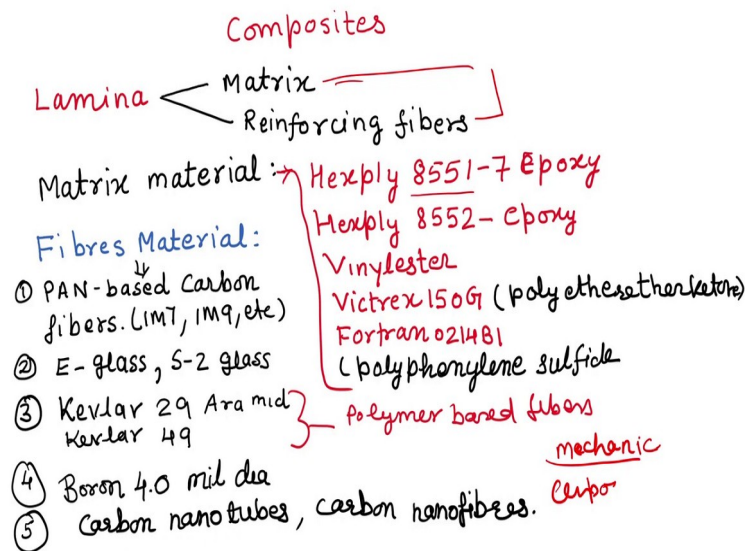 Composites
Lamina
Matrix
Reinforcing fibers
Matrix material :→ Hexply 8551-7 Epoxy
Hexply 8552- epoxy
Vinylester
Victrex 150G (polyetheretherketone)
Fortran 0214B1
(polyphonylene sulfide
Fibres Material:
① PAN-based Carbon
fibers. (IM7, IM9, etc)
② E-glass, S-2 glass
③ Kevlar 29 Aramid
Kevlar 49
Polymer based fibers
④ Boron 4.0 mil dia
⑤ Carbon nanotubes, carbon nanofibres.
mechanic